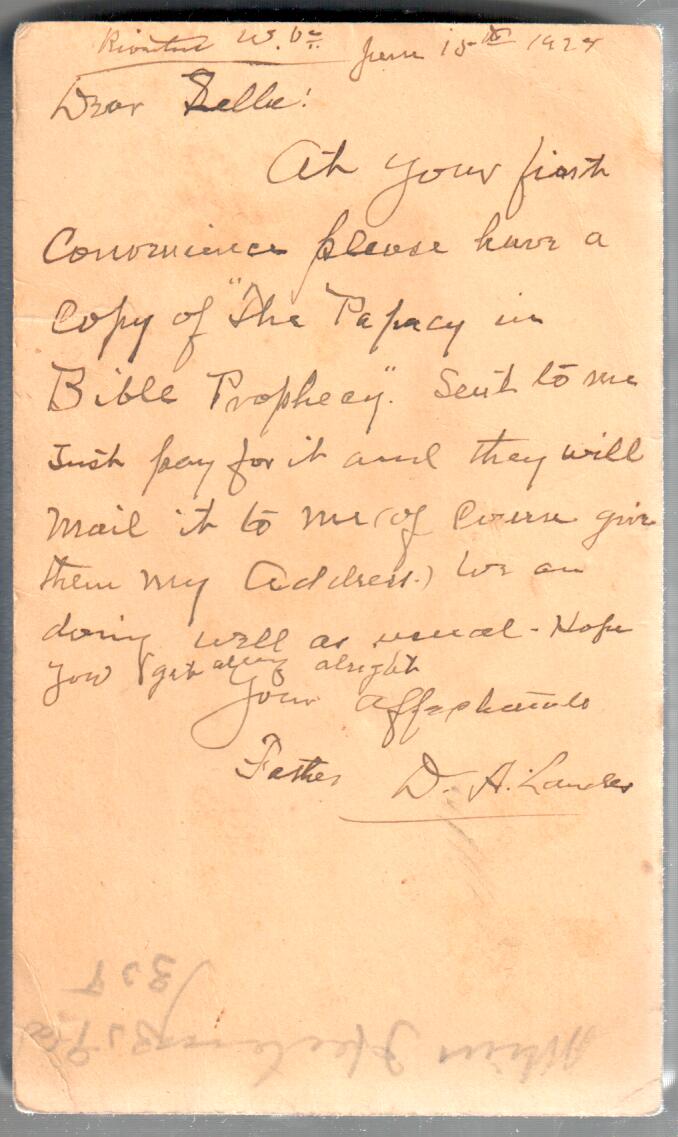 Riverton W. Va. June 15th 1927
Dear Zella!
At your first
Convenience please have a
Copy of "The Papacy in
Bible Prophecy". Sent to me
Just pay for it and they will
Mail it to me (of Course give
them my Address.) We are
doing well as usual - Hope
you get along alright
Your Affectionate
Father D. A. Landes
358